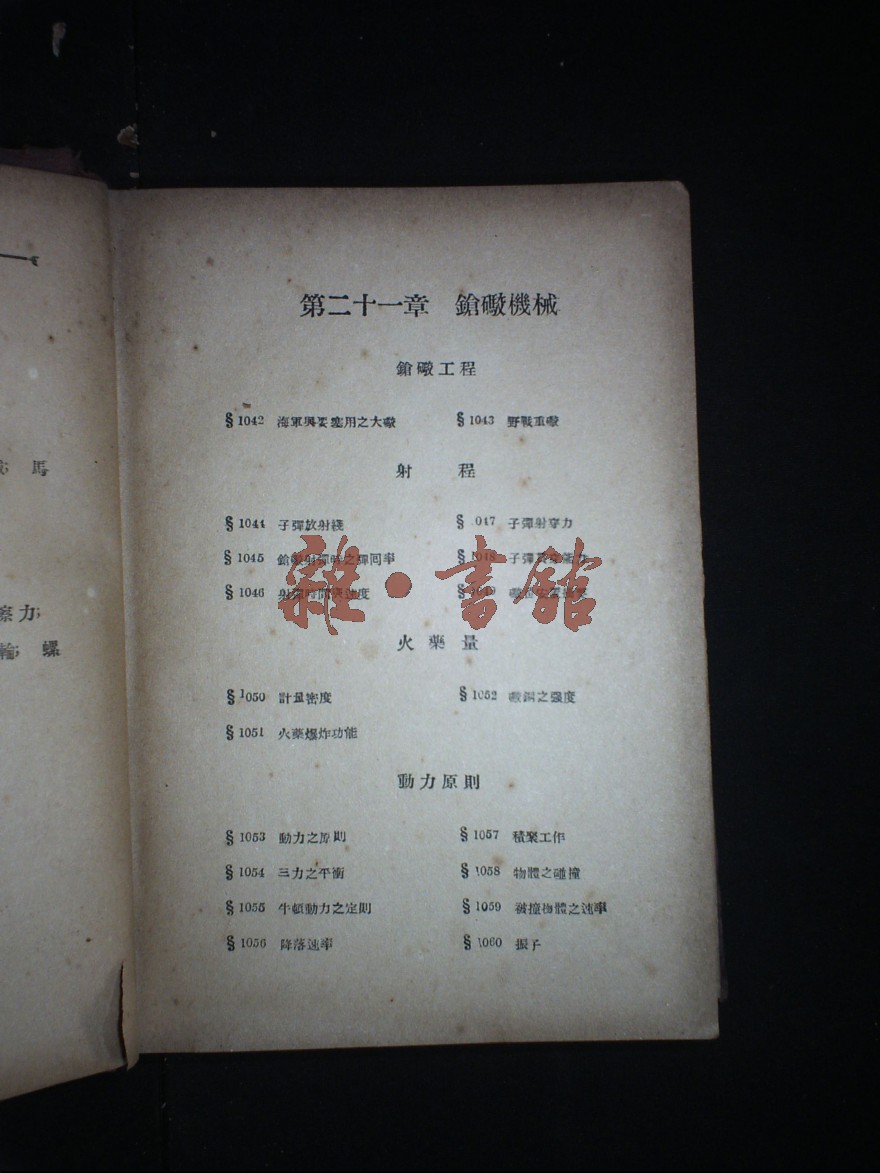 馬
察力;
輪 螺
第二十一章 鎗礮機械
鎗礮工程
§ 1042 海軍與要塞用之大礮 § 1043 野戰重礮
射 程
§ 1044 子彈放射綫 § 1047 子彈射穿力
§ 1045 鎗礮射彈時之彈回率 § 1048 子彈
§ 1046 射彈時間與速度 § 1049
雜·書館
火藥量
§ 1050 計量密度 § 1052 礮鋼之强度
§ 1051 火藥爆炸功能
動力原則
§ 1053 動力之原則 § 1057 積聚工作
§ 1054 三力之平衡 § 1058 物體之碰撞
§ 1055 牛頓動力之定則 § 1059 被撞物體之速率
§ 1056 降落速率 § 1060 振子